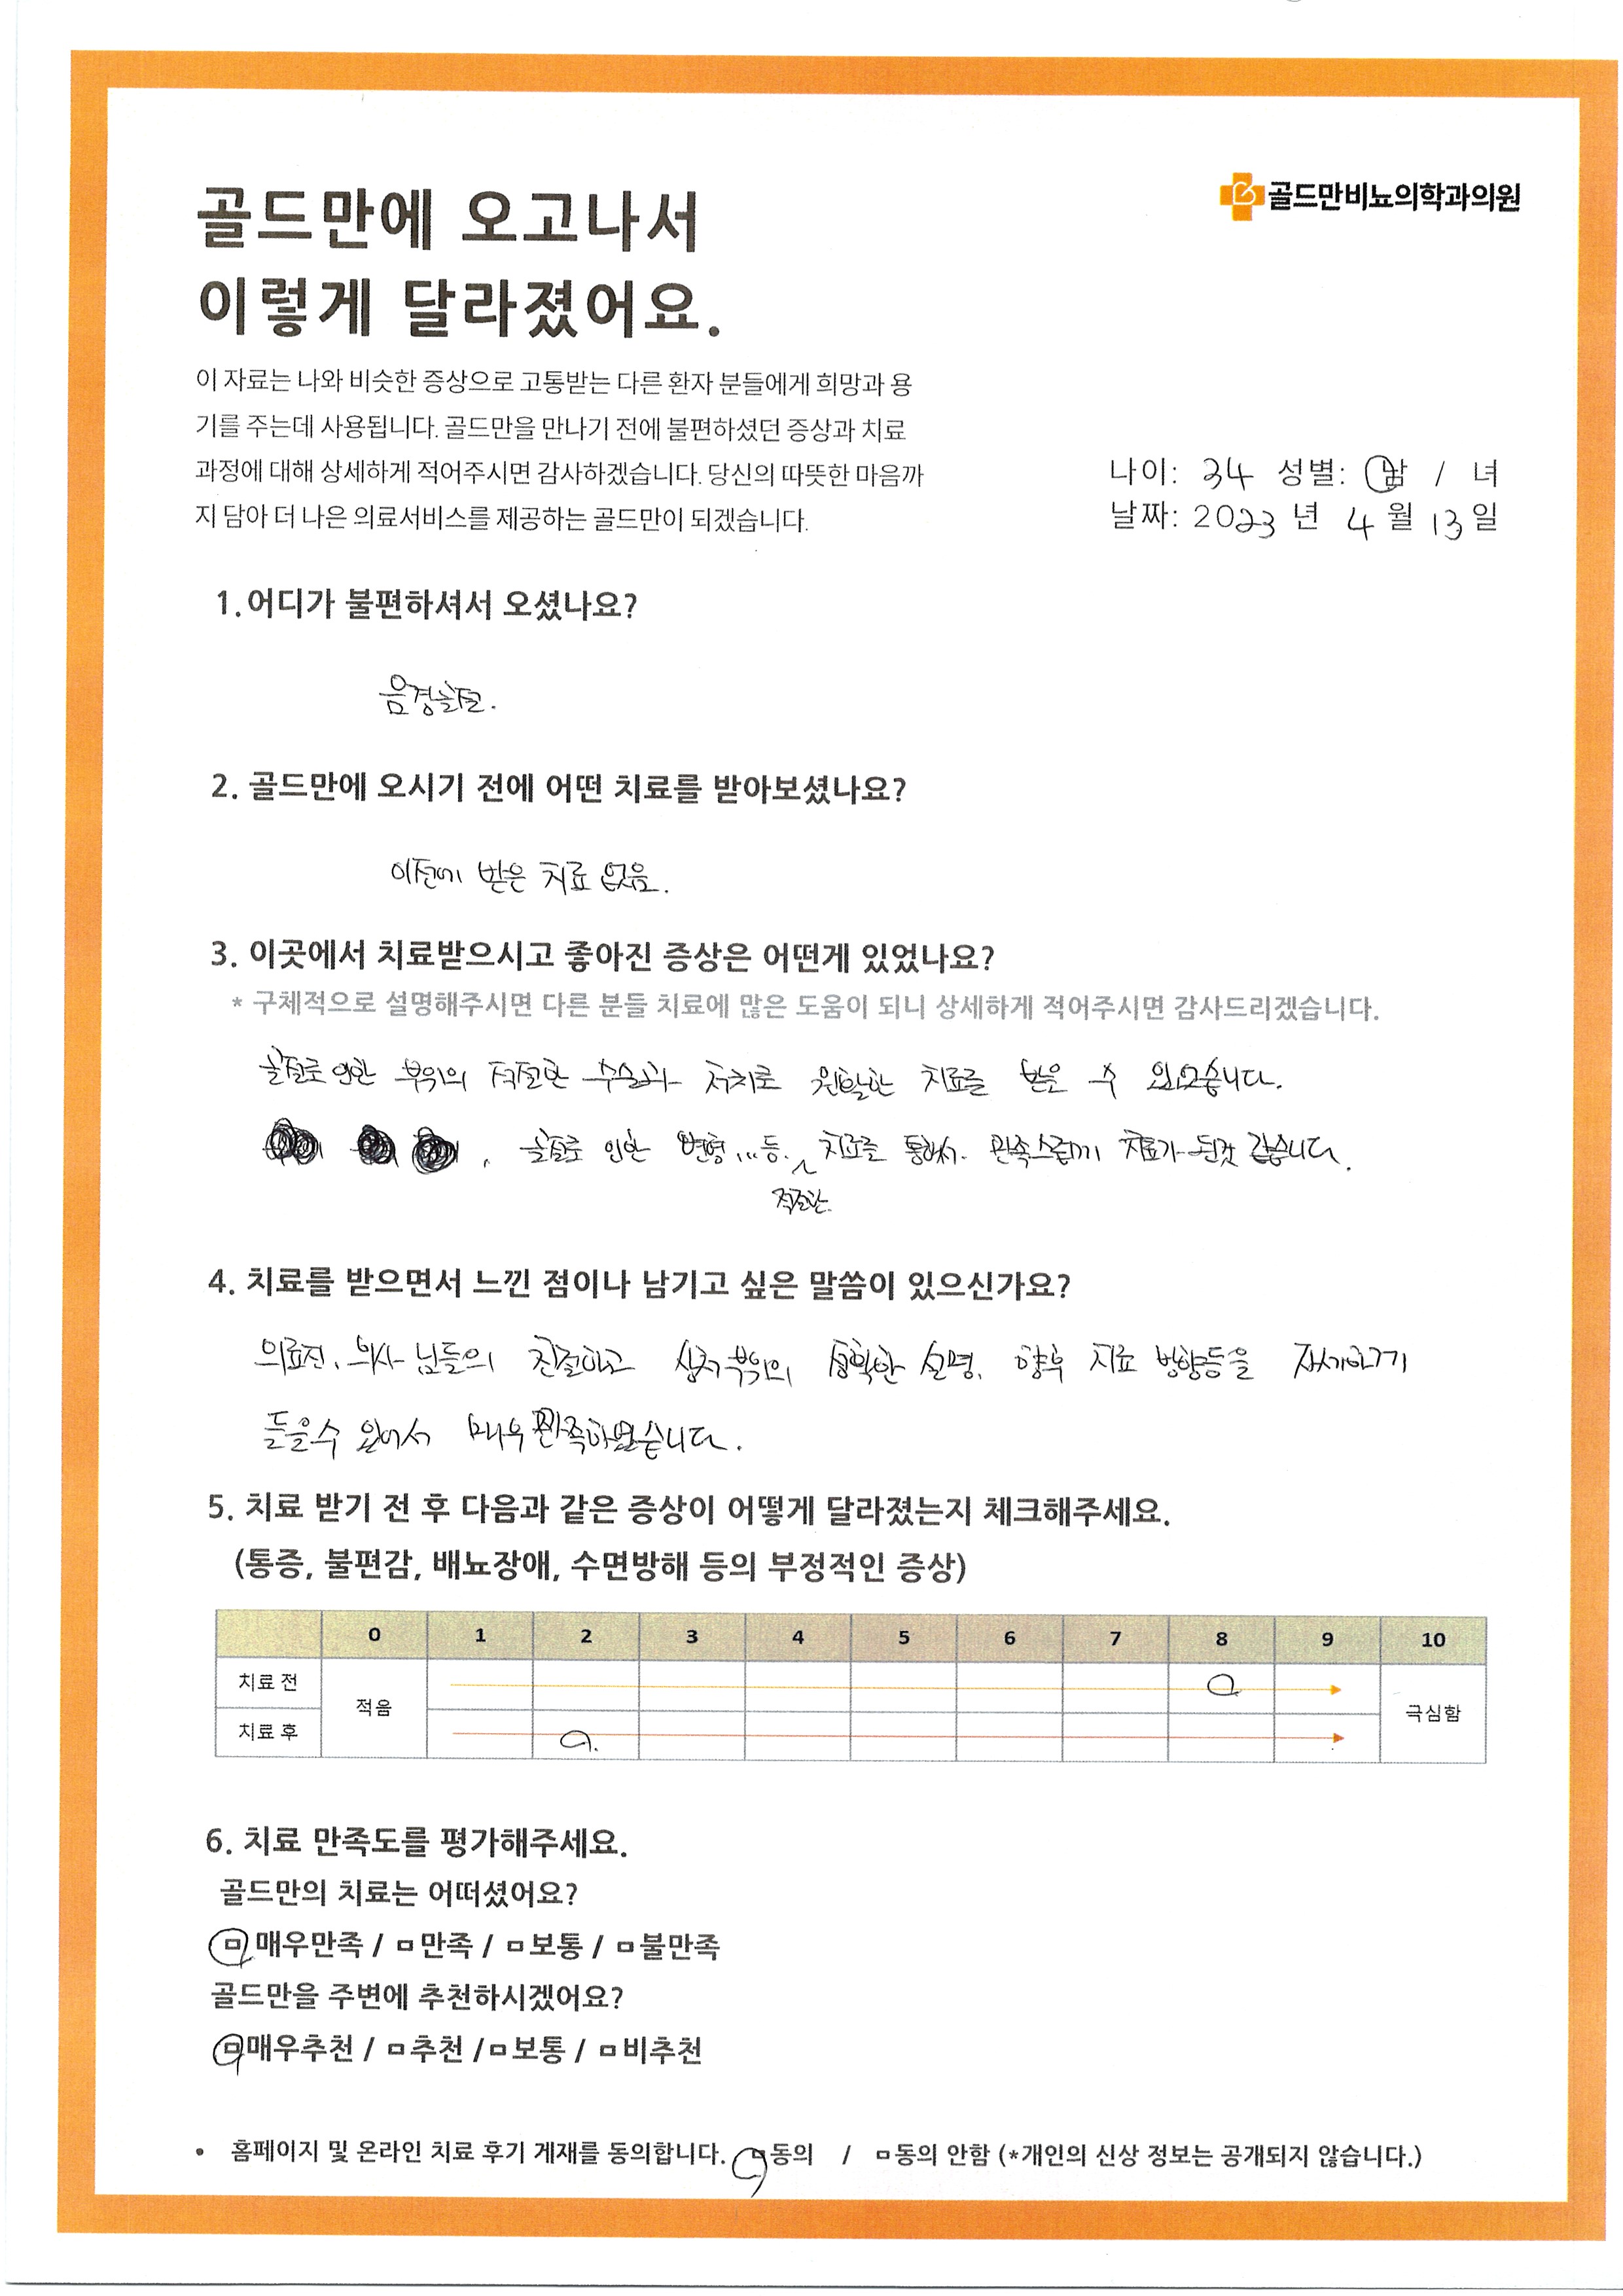 골드만비뇨의학과의원
골드만에 오고나서
이렇게 달라졌어요.
이 자료는 나와 비슷한 증상으로 고통받는 다른 환자 분들에게 희망과 용
기를 주는데 사용됩니다. 골드만을 만나기 전에 불편하셨던 증상과 치료
과정에 대해 상세하게 적어주시면 감사하겠습니다. 당신의 따뜻한 마음까
지 담아 더 나은 의료서비스를 제공하는 골드만이 되겠습니다.
나이: 34 성별: 남 / 녀
날짜: 2023 년 4 월 13 일
1. 어디가 불편하셔서 오셨나요?
음경골절.
2. 골드만에 오시기 전에 어떤 치료를 받아보셨나요?
이전에 받은 치료 없음.
3. 이곳에서 치료받으시고 좋아진 증상은 어떤게 있었나요?
* 구체적으로 설명해주시면 다른 분들 치료에 많은 도움이 되니 상세하게 적어주시면 감사드리겠습니다.
골절로 인한 부위의 적절한 수술과 처치로 원활한 치료를 받을 수 있었습니다.
골절로 인한 변형...등. 치료를 통해서 만족스럽게 치료가 된것 같습니다.
적절한
4. 치료를 받으면서 느낀 점이나 남기고 싶은 말씀이 있으신가요?
의료진, 의사 님들의 친절하고 상처부위의 정확한 설명, 향후 치료 방향등을 자세하게
들을수 있어서 매우 만족하였습니다.
5. 치료 받기 전 후 다음과 같은 증상이 어떻게 달라졌는지 체크해주세요.
(통증, 불편감, 배뇨장애, 수면방해 등의 부정적인 증상)
0 1 2 3 4 5 6 7 8 9 10
치료 전
적음
극심함
치료 후
6. 치료 만족도를 평가해주세요.
골드만의 치료는 어떠셨어요?
매우만족 / ㅁ만족 / ㅁ보통 / ㅁ불만족
골드만을 주변에 추천하시겠어요?
ㅁ매우추천 / ㅁ추천 /ㅁ보통 / ㅁ비추천
• 홈페이지 및 온라인 치료 후기 게재를 동의합니다. ㅁ동의 / ㅁ동의 안함 (*개인의 신상 정보는 공개되지 않습니다.)